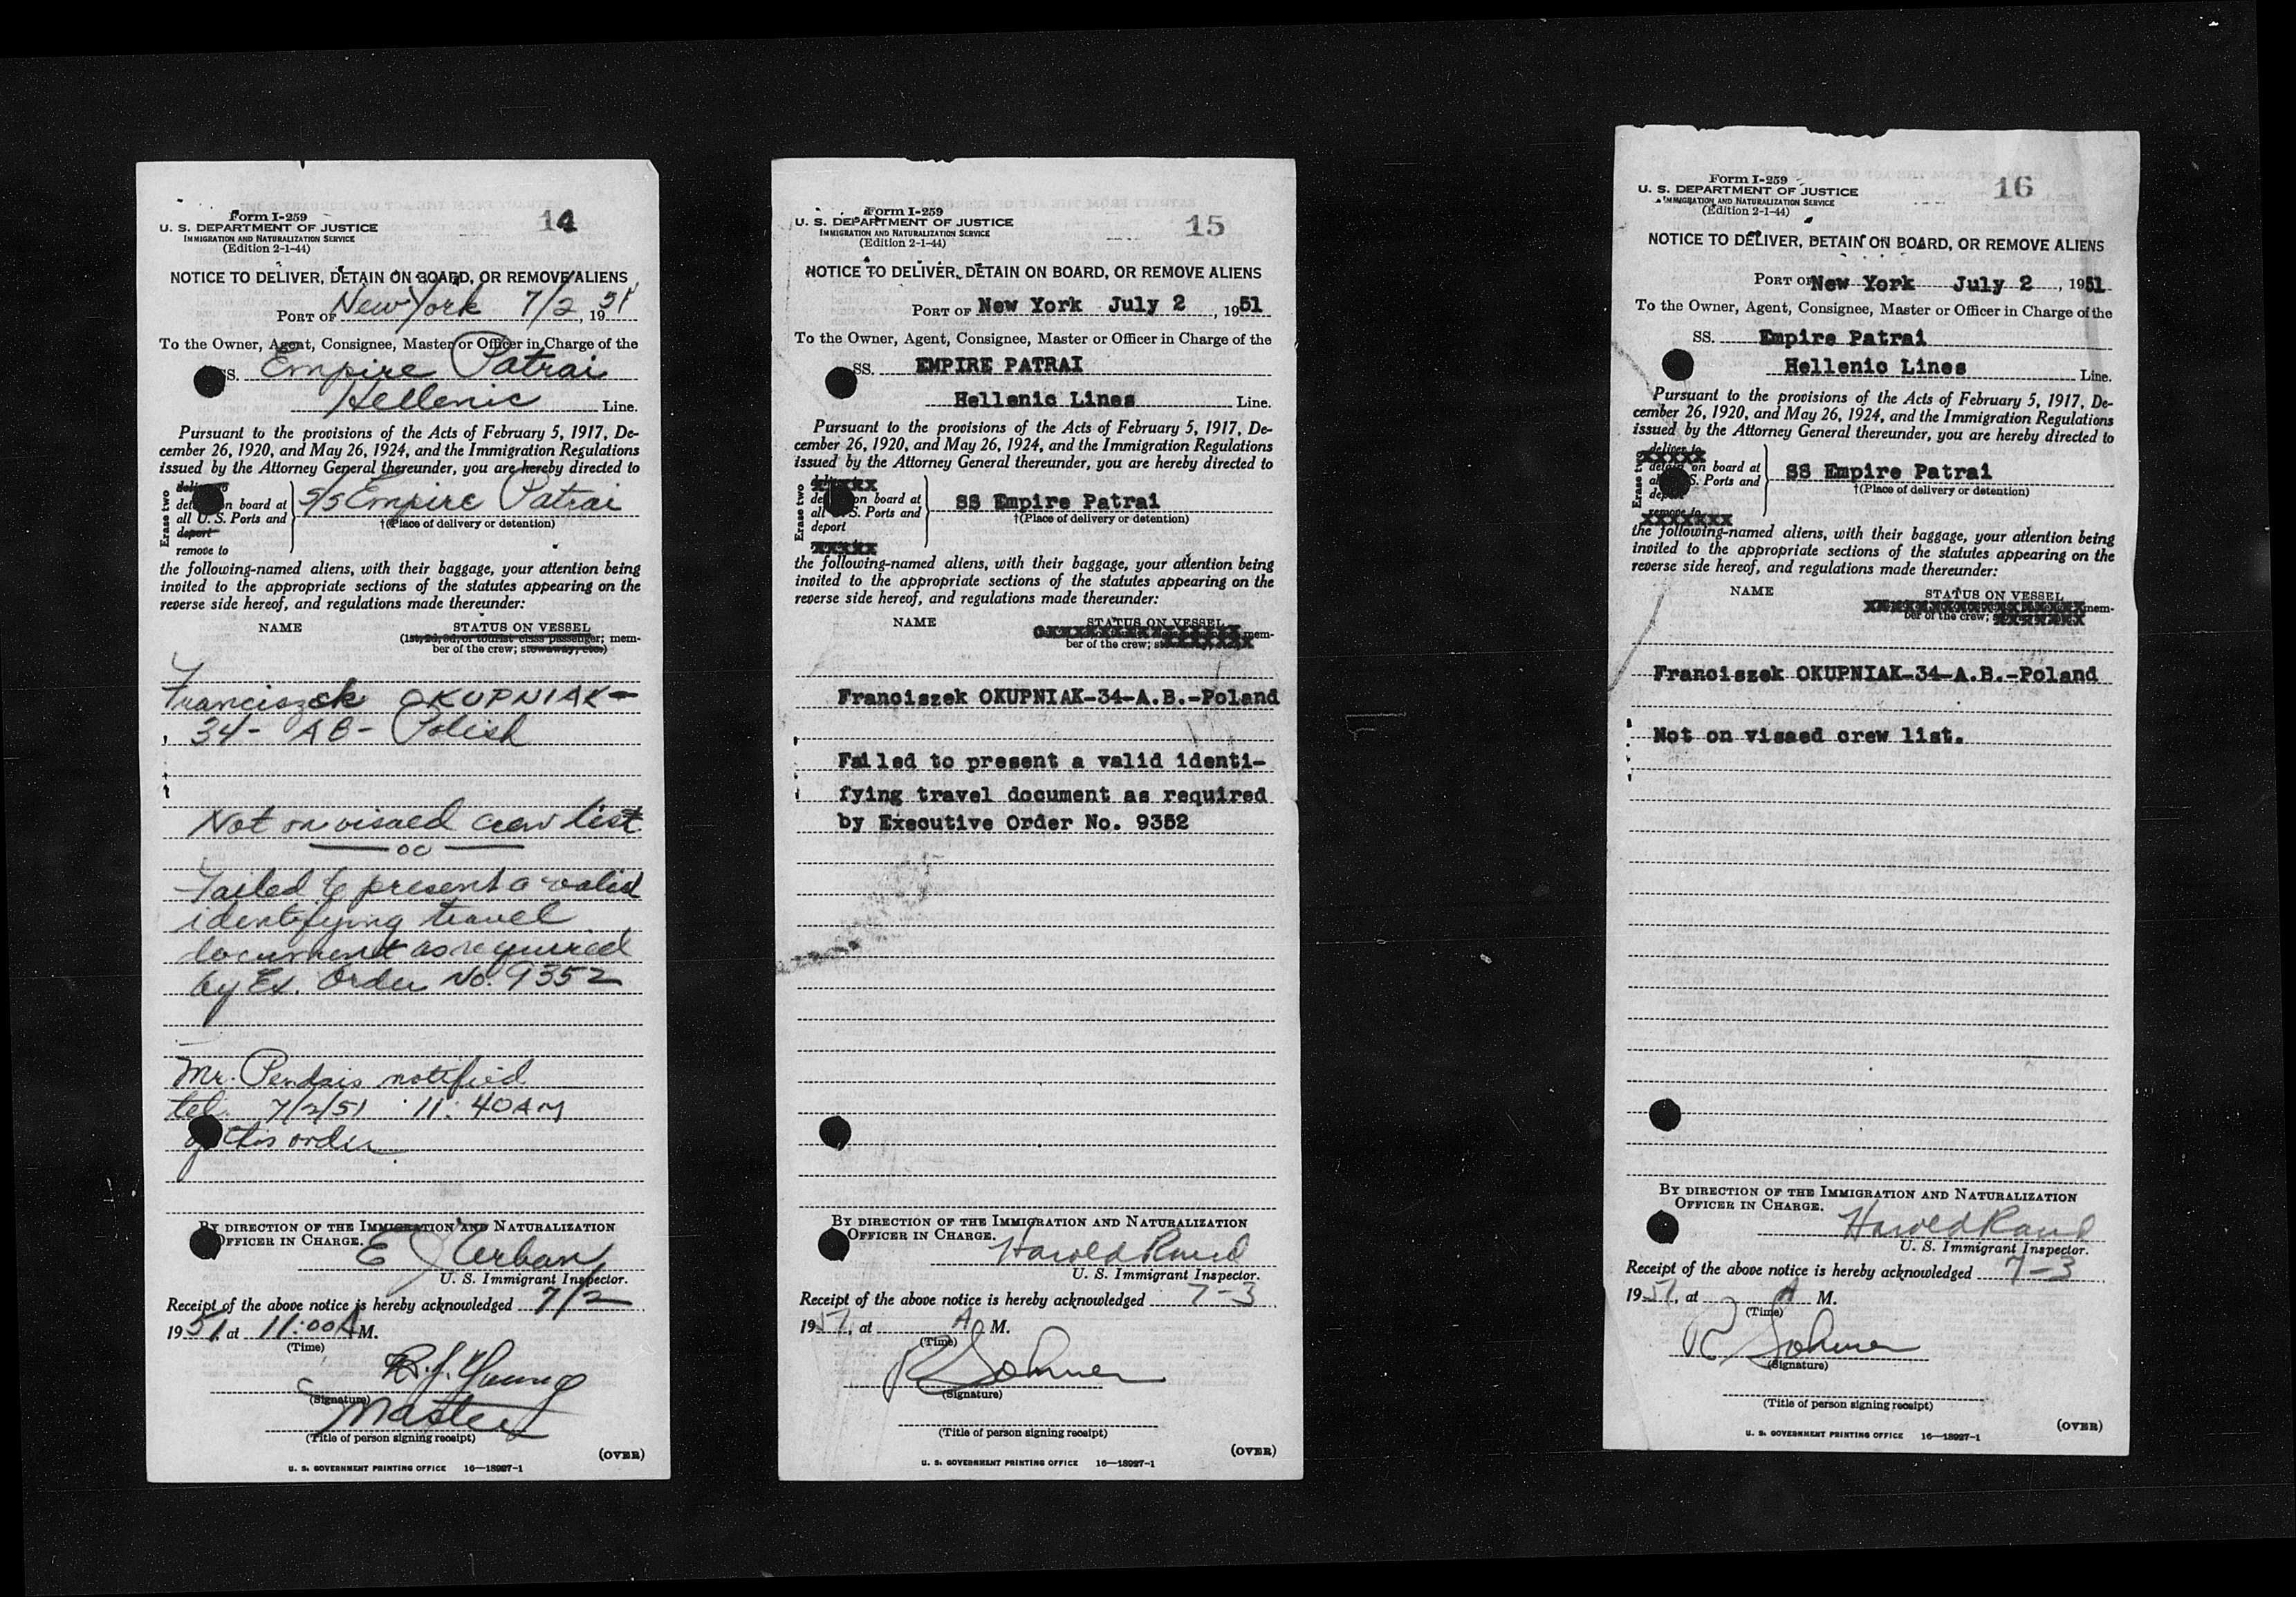 Form I-259
14
U. S. DEPARTMENT OF JUSTICE
IMMIGRATION AND NATURALIZATION SERVICE
(Edition 2-1-44)
NOTICE TO DELIVER, DETAIN ON BOARD, OR REMOVE ALIENS
PORT OF New York 7/2, 1951
To the Owner, Agent, Consignee, Master or Officer in Charge of the
SS. Empire Patrai
Hellenic Line.
Pursuant to the provisions of the Acts of February 5, 1917, De-
cember 26, 1920, and May 26, 1924, and the Immigration Regulations
issued by the Attorney General thereunder, you are hereby directed to
Erase two
deliver to
detain on board at
all U. S. Ports and
deport
remove to
S/S Empire Patrai
†(Place of delivery or detention)
the following-named aliens, with their baggage, your attention being
invited to the appropriate sections of the statutes appearing on the
reverse side hereof, and regulations made thereunder:
NAME STATUS ON VESSEL
(1st, 2d, 3d, or tourist class passenger; mem-
ber of the crew; stowaway, etc.)
Franciszek OKUPNIAK-
34- AB- Polish
Not on visaed crew list
Failed to present a valid
identifying travel
document as required
by Ex. Order No. 9352
Mr. notified
tel. 7/2/51 11:40 AM
of this order
BY DIRECTION OF THE IMMIGRATION AND NATURALIZATION
OFFICER IN CHARGE.
E J Urban
U. S. Immigrant Inspector.
Receipt of the above notice is hereby acknowledged 7/2
1951, at 11:00 A M.
(Time)
R. J. Young
(Signature)
Master
(Title of person signing receipt)
(OVER)
U. S. GOVERNMENT PRINTING OFFICE 16—18927-1
Form I-259
15
U. S. DEPARTMENT OF JUSTICE
IMMIGRATION AND NATURALIZATION SERVICE
(Edition 2-1-44)
NOTICE TO DELIVER, DETAIN ON BOARD, OR REMOVE ALIENS
PORT OF New York July 2, 1951
To the Owner, Agent, Consignee, Master or Officer in Charge of the
SS. EMPIRE PATRAI
Hellenic Lines Line.
Pursuant to the provisions of the Acts of February 5, 1917, De-
cember 26, 1920, and May 26, 1924, and the Immigration Regulations
issued by the Attorney General thereunder, you are hereby directed to
Erase two
xxxxx
detain on board at
all U. S. Ports and
deport
xxxxx
SS Empire Patrai
†(Place of delivery or detention)
the following-named aliens, with their baggage, your attention being
invited to the appropriate sections of the statutes appearing on the
reverse side hereof, and regulations made thereunder:
NAME STATUS ON VESSEL
mem-
ber of the crew;
Franciszek OKUPNIAK-34-A.B.-Poland
Failed to present a valid identi-
fying travel document as required
by Executive Order No. 9352
BY DIRECTION OF THE IMMIGRATION AND NATURALIZATION
OFFICER IN CHARGE.
Harold Rand
U. S. Immigrant Inspector.
Receipt of the above notice is hereby acknowledged 7-3
1951, at A M.
(Time)
R Sohmer
(Signature)
(Title of person signing receipt)
(OVER)
U. S. GOVERNMENT PRINTING OFFICE 16—18927-1
Form I-259
16
U. S. DEPARTMENT OF JUSTICE
IMMIGRATION AND NATURALIZATION SERVICE
(Edition 2-1-44)
NOTICE TO DELIVER, DETAIN ON BOARD, OR REMOVE ALIENS
PORT OF New York July 2, 1951
To the Owner, Agent, Consignee, Master or Officer in Charge of the
SS. Empire Patrai
Hellenic Lines Line.
Pursuant to the provisions of the Acts of February 5, 1917, De-
cember 26, 1920, and May 26, 1924, and the Immigration Regulations
issued by the Attorney General thereunder, you are hereby directed to
Erase two
deliver to
detain on board at
all U. S. Ports and
deport
remove to
SS Empire Patrai
†(Place of delivery or detention)
the following-named aliens, with their baggage, your attention being
invited to the appropriate sections of the statutes appearing on the
reverse side hereof, and regulations made thereunder:
NAME STATUS ON VESSEL
mem-
ber of the crew;
Franciszek OKUPNIAK-34-A.B.-Poland
Not on visaed crew list.
BY DIRECTION OF THE IMMIGRATION AND NATURALIZATION
OFFICER IN CHARGE.
Harold Rand
U. S. Immigrant Inspector.
Receipt of the above notice is hereby acknowledged 7-3
1951, at A M.
(Time)
R Sohmer
(Signature)
(Title of person signing receipt)
(OVER)
U. S. GOVERNMENT PRINTING OFFICE 16—18927-1